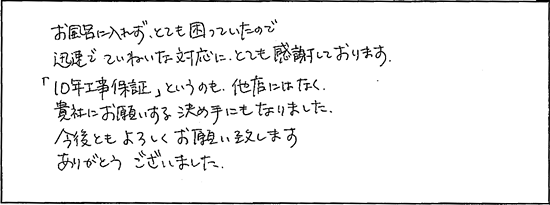 お風呂に入れず、とても困っていたので
迅速でていねいた対応に、とても感謝しております.
「10年工事保証」というのも、他店にはなく、
貴社にお願いする決め手にもなりました.
今後ともよろしくお願い致します
ありがとうございました.